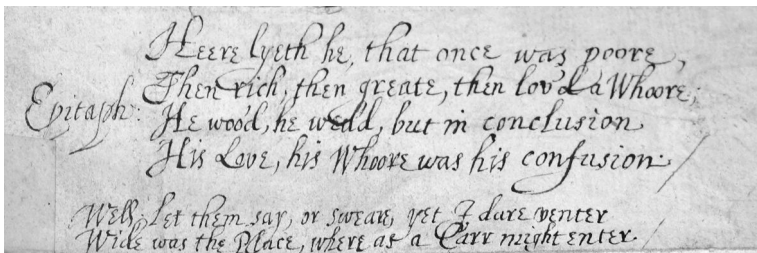 Heere lyeth he, that once was poore,
Then rich, then greate, then lov'd a Whoore;
Epitaph:
He woo'd, he wedd, but in conclusion
His Love, his Whoore was his confusion.
Well, let them say, or sweare, yet I dare venter
Wide was the Place, where as a Carr might enter.